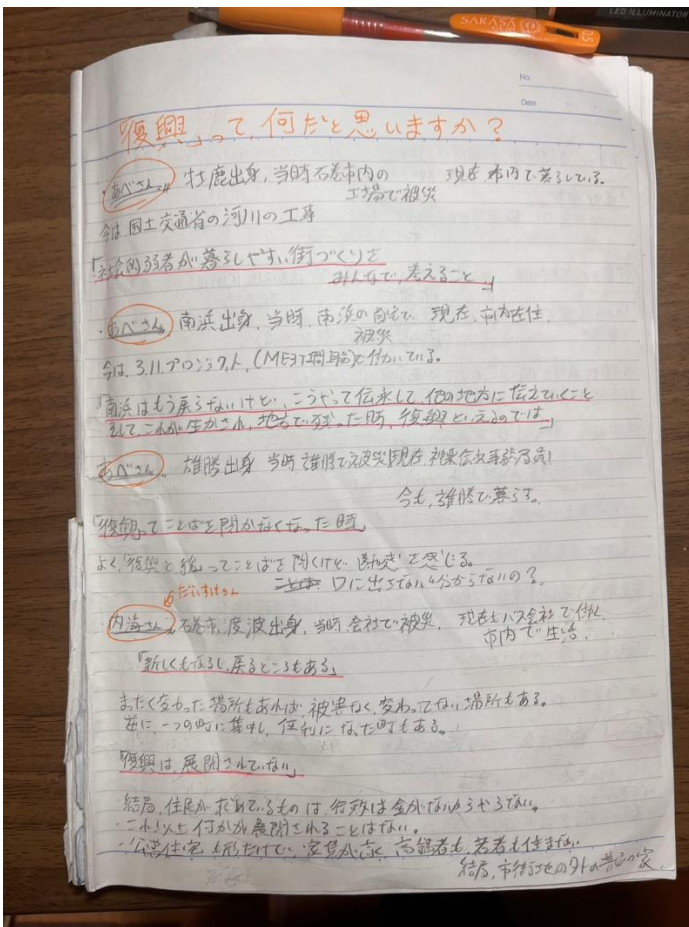 SARASA
0.5
LED ILLUMINATOR
No.
Date
「復興」って、何だと思いますか？
・あべさん 牡鹿出身、当時石巻市内の工場で被災 現在 市内で暮らしている。
今は国土交通省の河川の工事
「社会的弱者が暮らしやすい街づくりを
みんなで、考えること」
・あべさん 南浜出身、当時、南浜の自宅で被災 現在、市内在住、
今は、3.11.プロジェクト、(MEET門脇)で働いている。
「南浜はもう戻らないけど、こうやって伝承して、他の地方に伝えていくこと
そして、これが生かされ、地方で残った時、復興といえるのでは」
あべさん 雄勝出身 当時雄勝で被災 現在、
今も、雄勝で暮らす。
「復興ってことばを聞かなくなった時」
よく、「復興と絆」ってことばを聞くけど、"断絶"を感じる。
口に出さないと分からないの？
だいすけさん
・内海さん 石巻市、渡波出身、当時会社で被災、現在もバス会社で働く、
市内で生活。
「新しくもなるし、戻るところもある」
まったく変わった場所もあれば、被害なく、変わってない場所もある。
逆に、一つの町に集中し、便利になった町もある。
「復興は、展開されていない」
・結局、住民が求めているものは、行政は金がないからやらない。
・これ以上何かが展開されることはない。
・公営住宅も形だけで、家賃が高く 高齢者も、若者も住まない
結局、市街地の外の普通の家